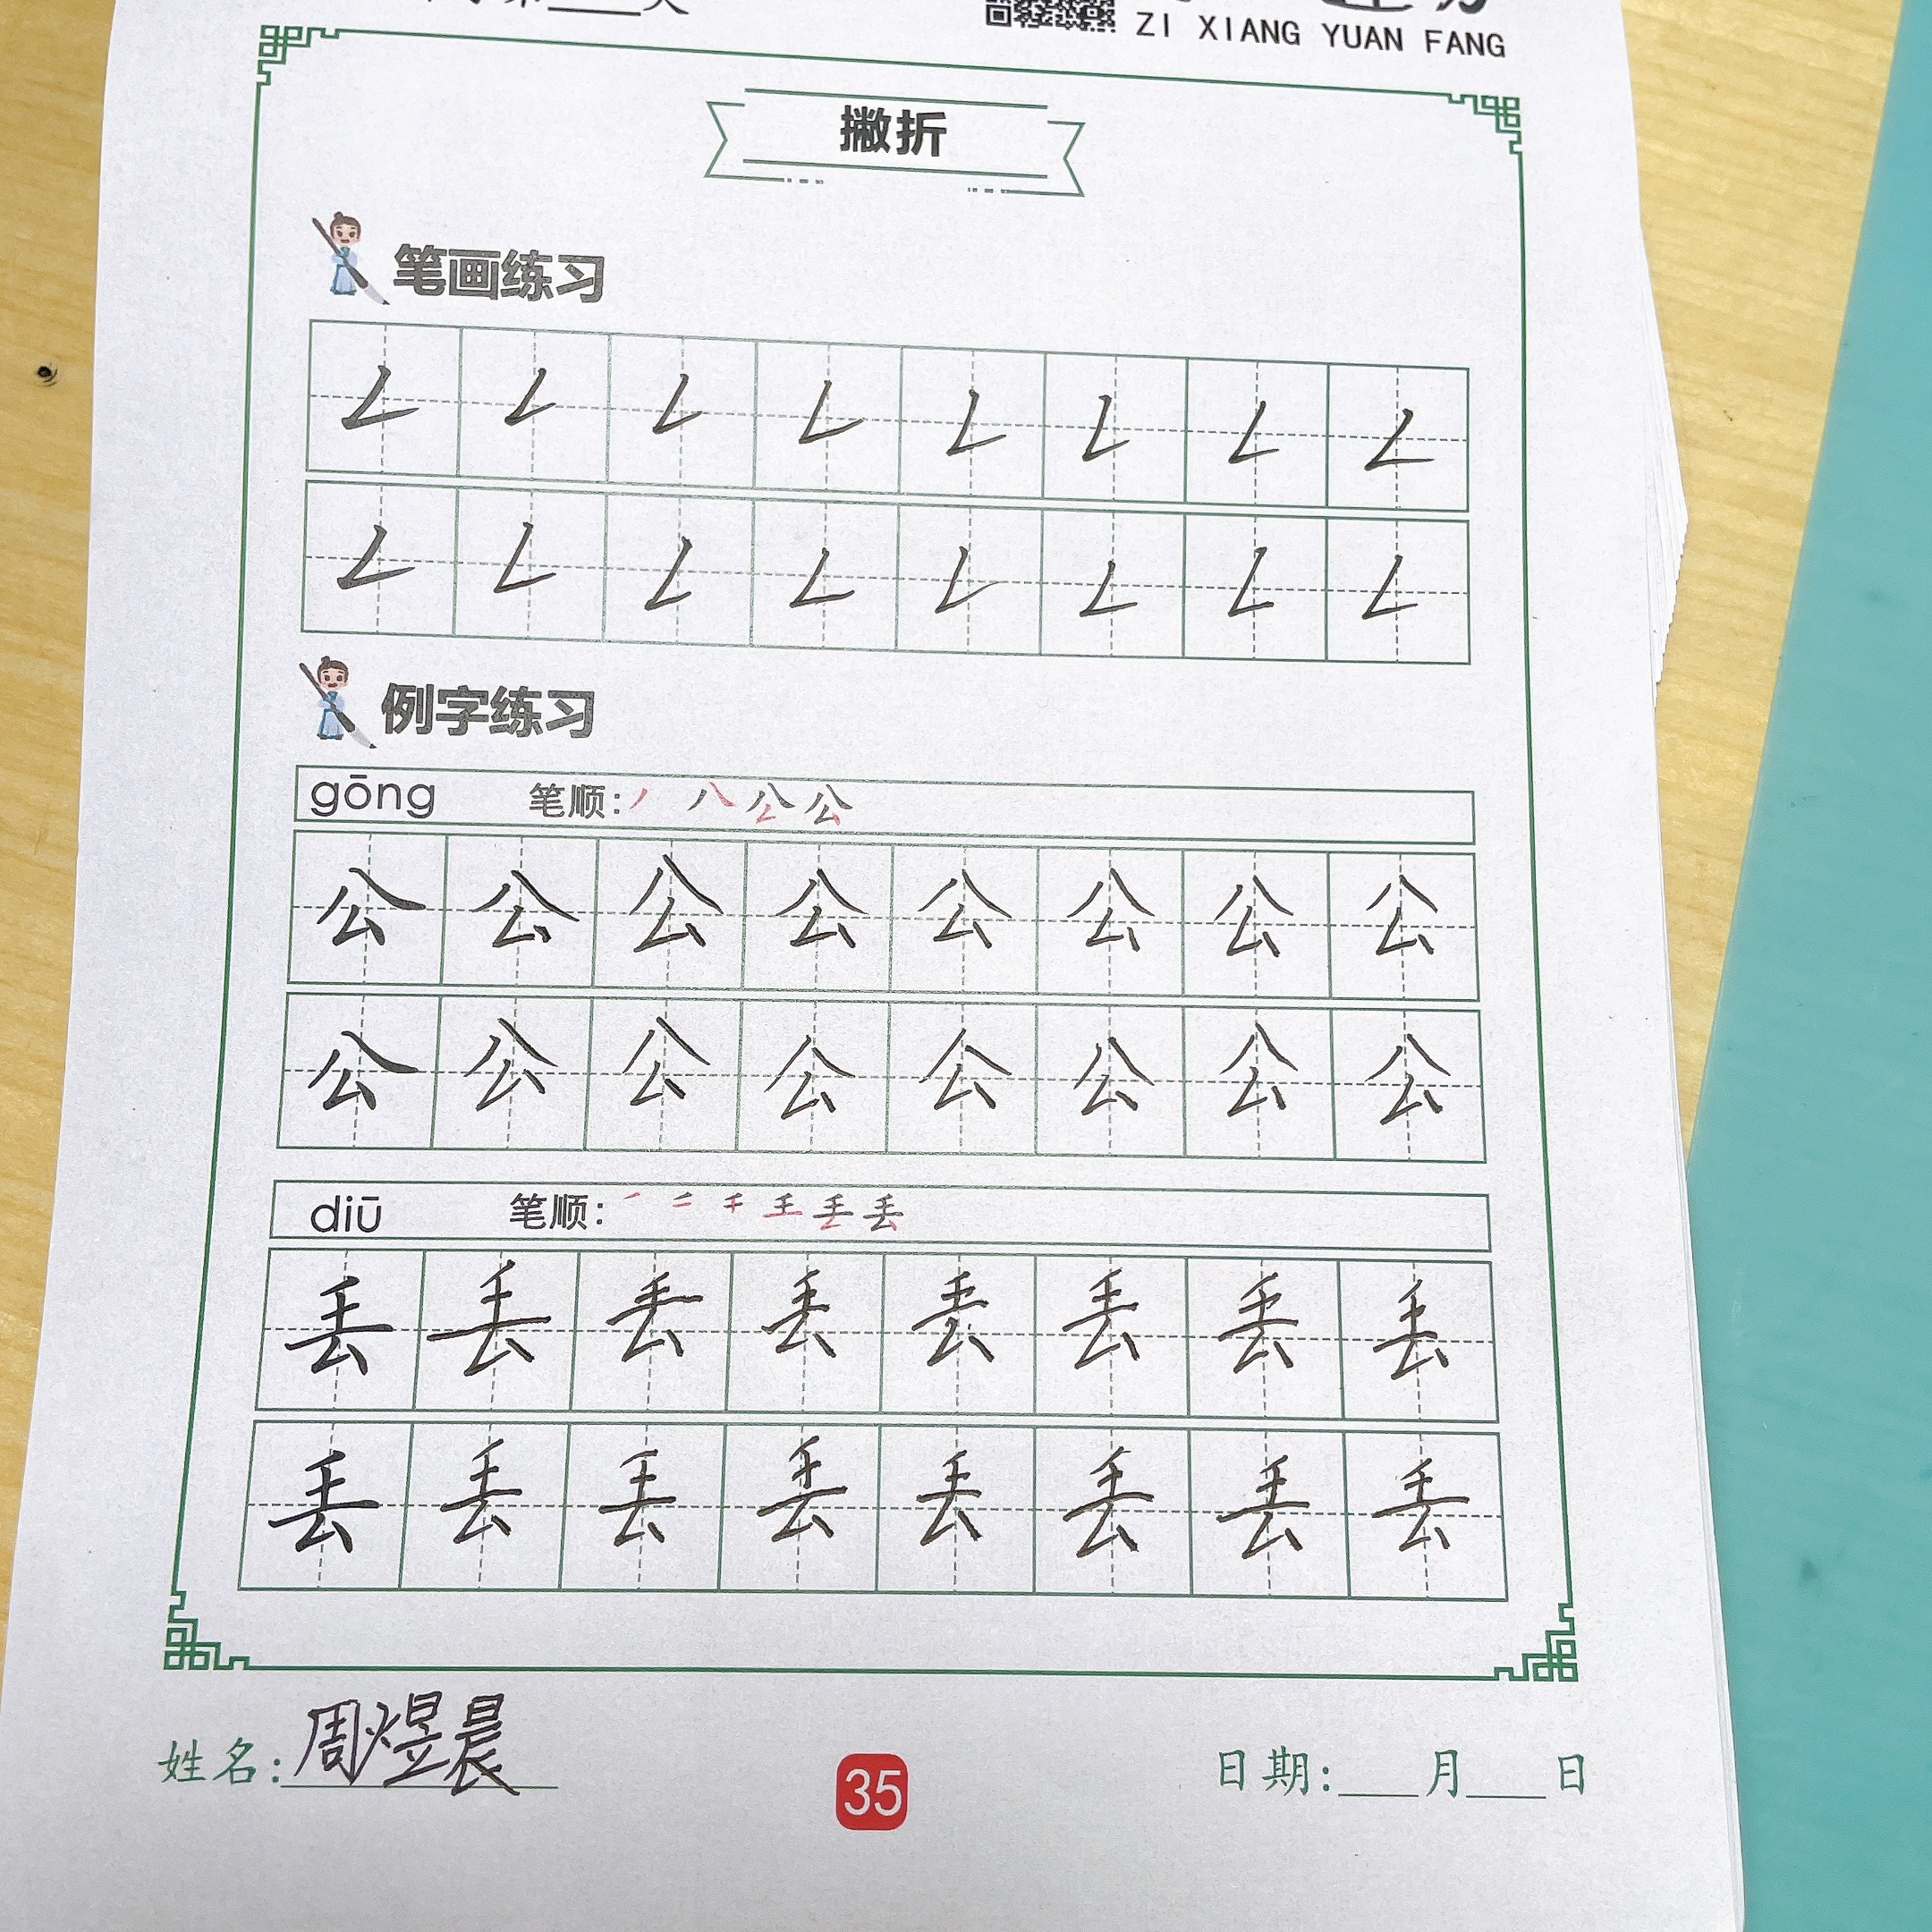 ZI XIANG YUAN FANG
撇折
笔画练习
𠃋 𠃋 𠃋 𠃋 𠃋 𠃋 𠃋 𠃋
𠃋 𠃋 𠃋 𠃋 𠃋 𠃋 𠃋 𠃋
例字练习
gōng 笔顺:
公 公 公 公 公 公 公 公
公 公 公 公 公 公 公 公
diū 笔顺:
丢 丢 丢 丢 丢 丢 丢 丢
丢 丢 丢 丢 丢 丢 丢 丢
姓名:周煜晨
35
日期:___月___日